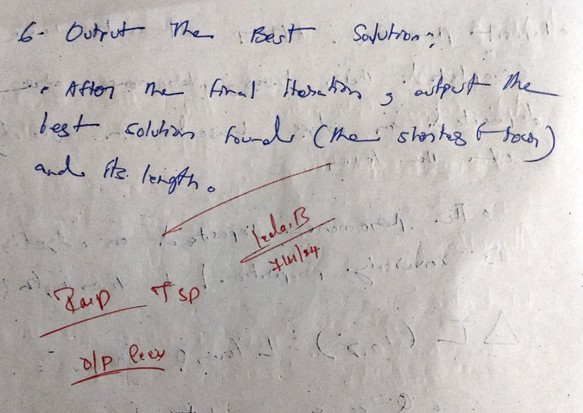 6- Output The Best Solution:
• After the final Iteration, output the
best solution found (the shortest tour)
and its length.
TSP
O/P